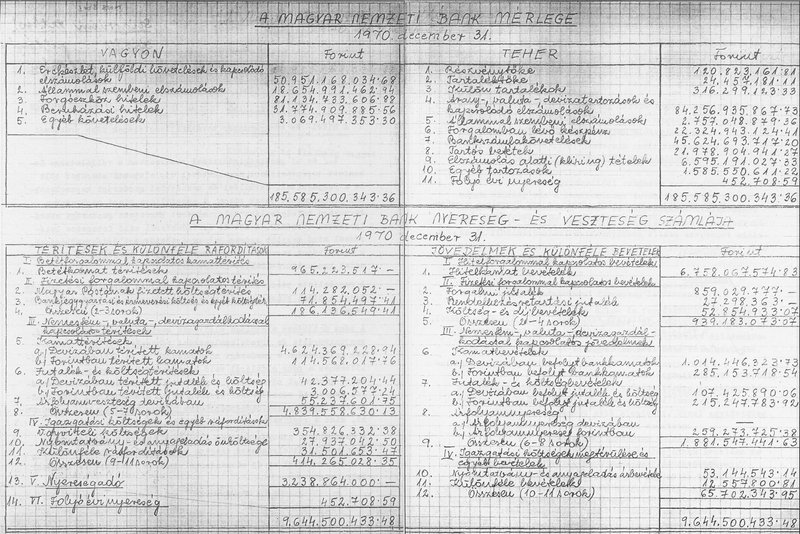 A MAGYAR NEMZETI BANK MÉRLEGE
1970. december 31.
VAGYON Forint
1. Érckészlet, külföldi követelések és kapcsolódó
elszámolások 50.951.168.034·68
2. Állammal szembeni elszámolások 18.654.991.462·94
3. Forgóeszköz hitelek 81.134.733.606·88
4. Beruházási hitelek 31.774.909.885·56
5. Egyéb követelések 3.069.497.353·30
185.585.300.343·36
TEHER Forint
1. Részvénytőke 120.823.161·81
2. Tartaléktőke 24.457.181·11
3. Külön tartalékok 316.299.123·33
4. Arany-, valuta-, devizatartozások és
kapcsolódó elszámolások 84.256.935.867·73
5. Állammal szembeni elszámolások 2.757.048.879·36
6. Forgalomban lévő készpénz 22.324.943.124·41
7. Bankszámlakövetelések 45.624.693.717·20
8. Tartós betétek 21.978.904.941·27
9. Elszámolás alatti (klíring) tételek 6.595.191.027·33
10. Egyéb tartozások 1.585.550.611·22
11. Folyó évi nyereség 452.708·59
185.585.300.343·36
A MAGYAR NEMZETI BANK NYERESÉG- ÉS VESZTESÉG SZÁMLÁJA
1970 december 31.
TÉRÍTÉSEK ÉS KÜLÖNFÉLE RÁFORDÍTÁSOK Forint
I. Betétforgalommal kapcsolatos kamattérítés
1. Betétkamat térítések 965.223.517·—
II. Fizetési forgalommal kapcsolatos térítés
2. Magyar Postának fizetett költségtérítés 114.282.052·—
3. Bankjegygyártási és érmeverési költség és egyéb költségtér. 71.854.497·41
4. Összesen (2-3 sorok) 186.136.549·41
III. Nemesfém-, valuta-, devizagazdálkodással
kapcsolatos térítések
5. Kamattérítések
a) Devizában térített kamatok 4.624.369.228·94
b) Forintban térített kamatok 114.568.017·76
6. Jutalék- és költségtérítések
a) Devizában térített jutalék és költség 42.377.204·44
b) Forintban térített jutalék és költség 3.006.577·24
7. Árfolyamveszteség devizában 55.237.601·75
8. Összesen (5-7 sorok) 4.839.558.630·13
IV. Igazgatási költségek és egyéb ráfordítások
9. Ügyviteli költségek 354.826.332·38
10. Nyomtatvány- és anyageladás önköltsége 27.937.042·50
11. Különféle ráfordítások 31.501.653·47
12. Összesen (9-11 sorok) 414.265.028·35
13. V. Nyereségadó 3.238.864.000·—
14. VI. Folyó évi nyereség 452.708·59
9.644.500.433·48
JÖVEDELMEK ÉS KÜLÖNFÉLE BEVÉTELEK Forint
I. Hitelforgalommal kapcsolatos bevételek
1. Hitelkamat bevételek 6.758.067.574·83
II. Fizetési forgalommal kapcsolatos bevételek
2. Forgalmi jutalék 859.029.777·—
3. Rendelkezésretartási jutalék 27.298.363·—
4. Költség- és díjbevételek 52.854.933·07
5. Összesen (2-4 sorok) 939.183.073·07
III. Nemesfém-, valuta-, devizagazdál-
kodással kapcsolatos jövedelmek
6. Kamatbevételek
a) Devizában befolyt bankkamatok 1.014.446.323·73
b) Forintban befolyt bankkamatok 285.153.718·54
7. Jutalék- és költségbevételek
a) Devizában befolyt jutalék és költség 107.425.890·06
b) Forintban befolyt jutalék és költség 215.247.783·92
8. Árfolyamnyereség
a) Árfolyamnyereség devizában
b) Árfolyamnyereség forintban 259.273.725·38
9. Összesen (6-8 sorok) 1.881.547.441·63
IV. Igazgatási költségek megtérülése és
egyéb bevételek
10. Nyomtatvány- és anyageladás árbevétele 53.144.543·14
11. Különféle bevételek 12.557.800·81
12. Összesen (10-11 sorok) 65.702.343·95
9.644.500.433·48